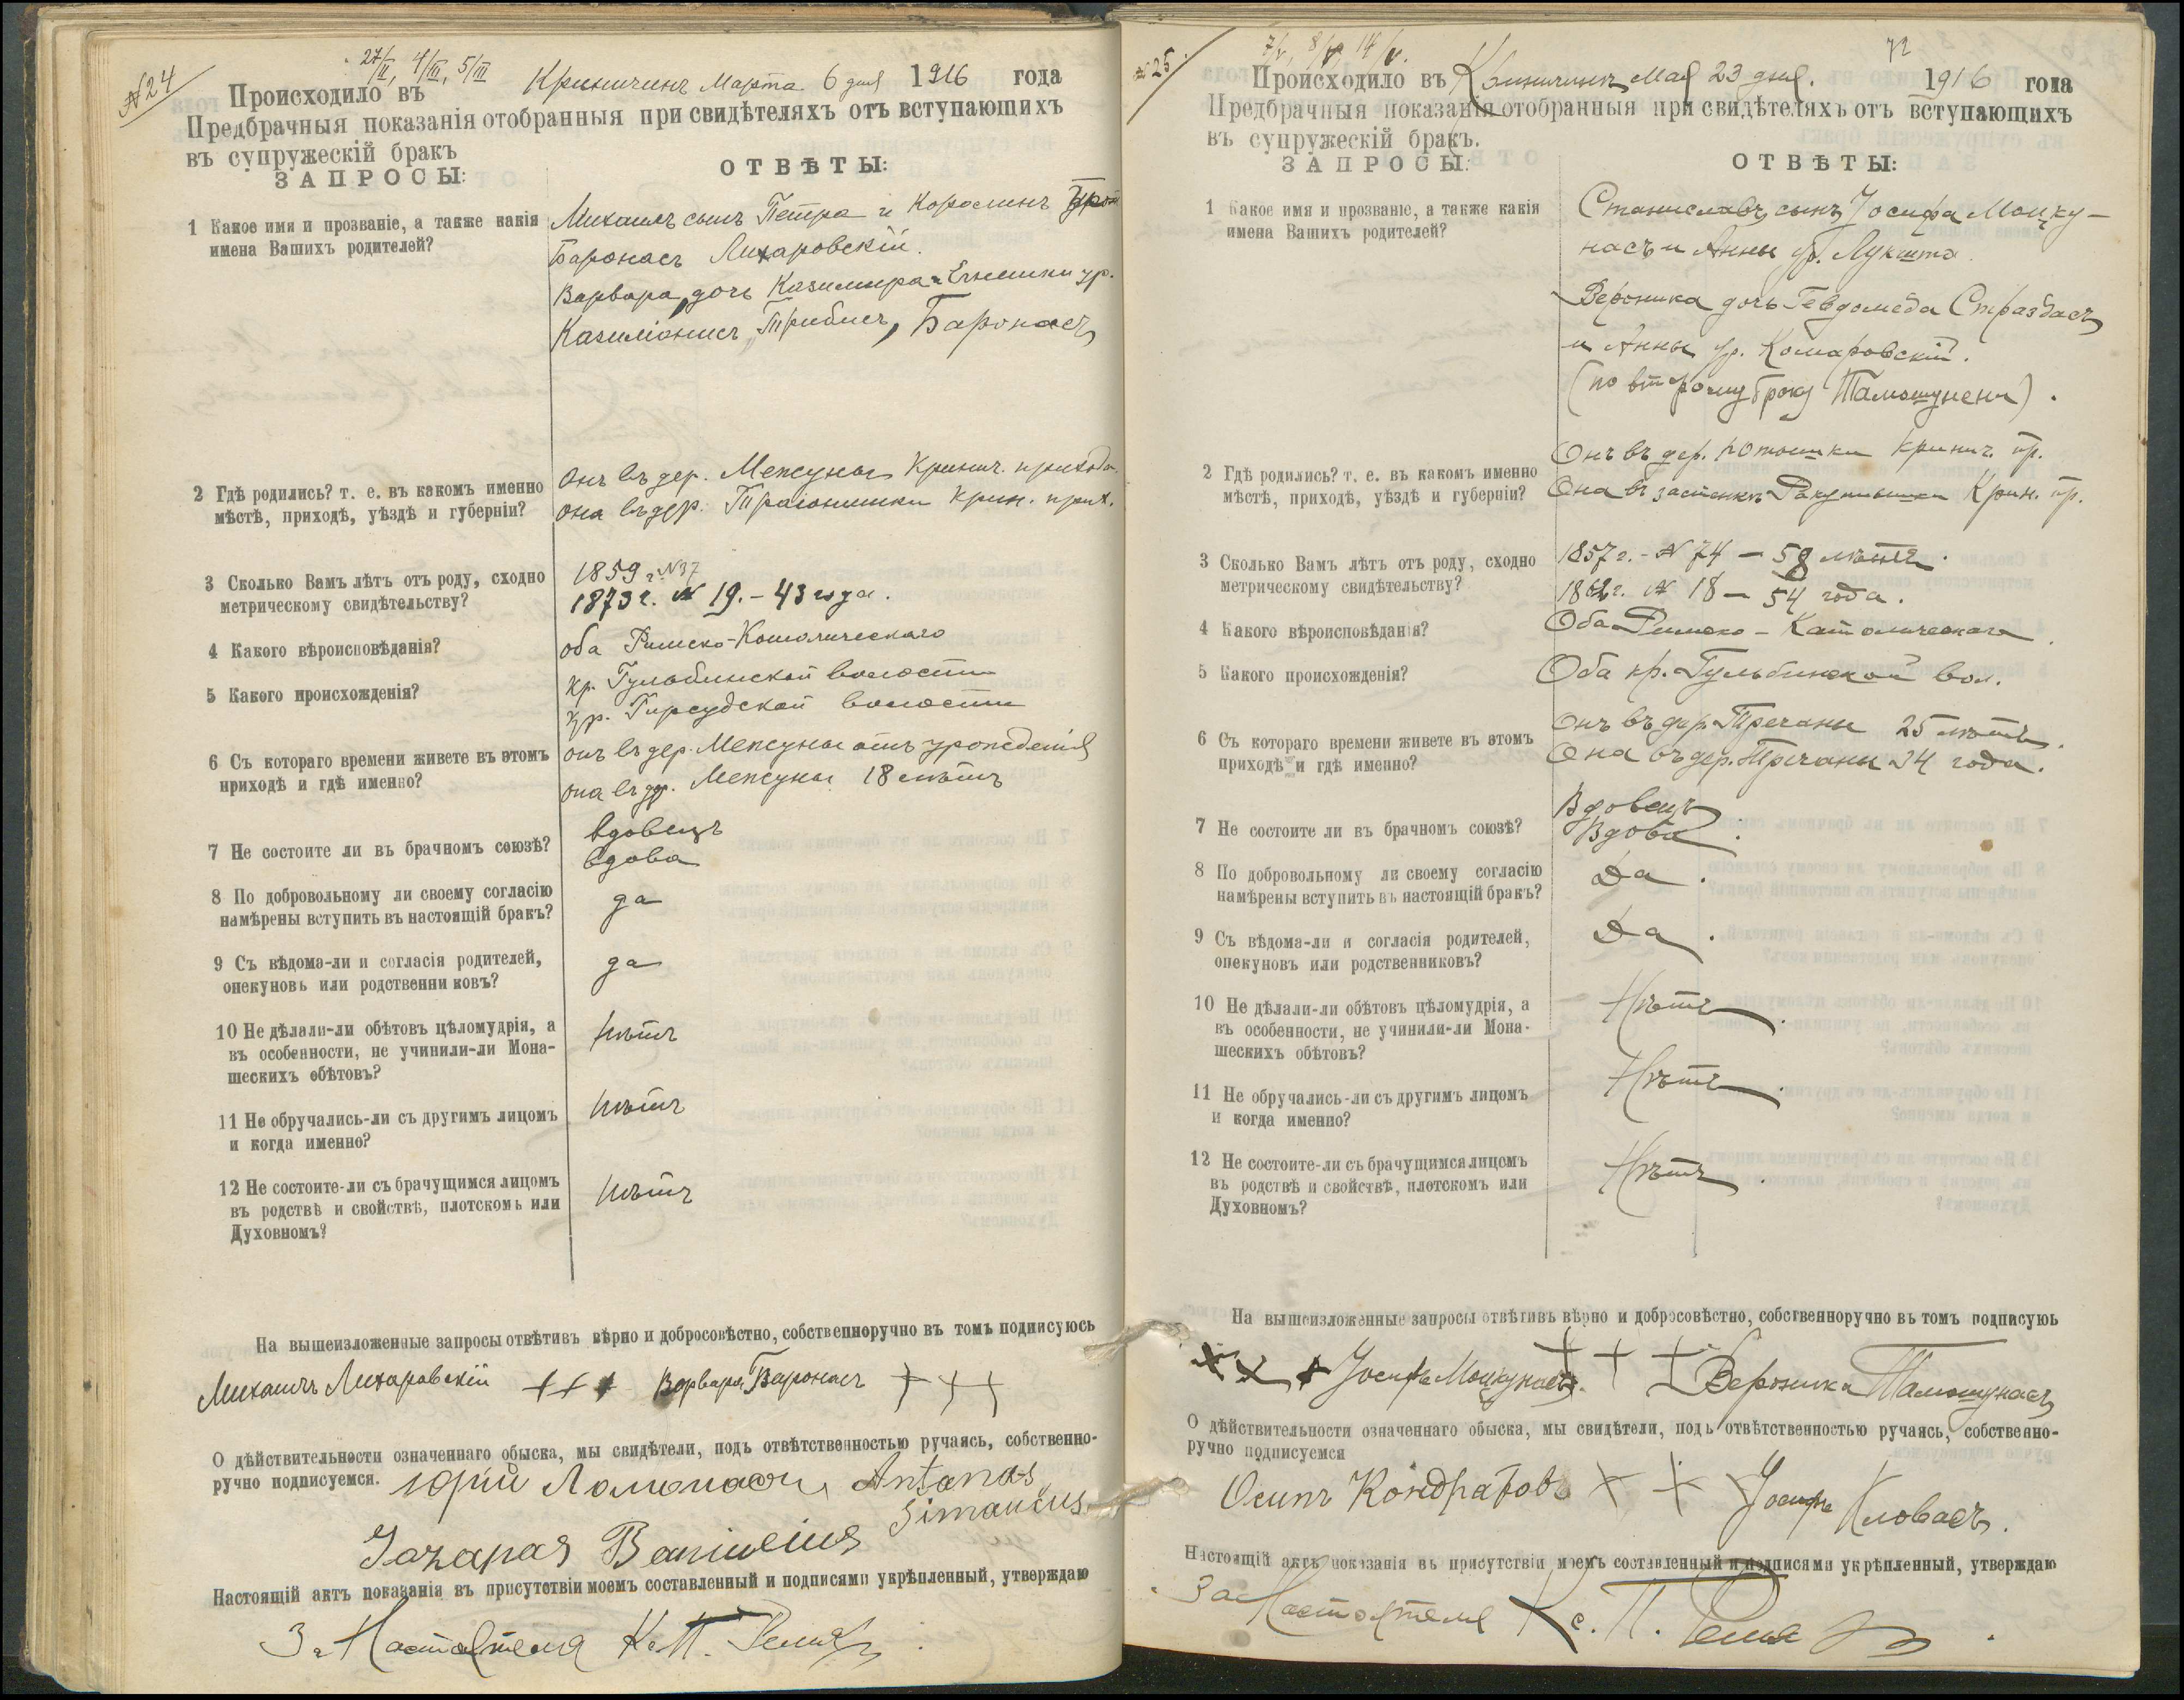 № 24
27/II, 4/III, 5/III
Происходило въ Криничинъ Марта 6 дня 1916 года
Предбрачныя показанія отобранныя при свидѣтеляхъ отъ вступающихъ
въ супружескій бракъ
ЗАПРОСЫ:
ОТВѢТЫ:
1 Какое имя и прозваніе, а также какія
имена Вашихъ родителей?
Михаилъ сынъ Петра и
Баронасъ Лихаровскій.
Варвара, дочь Казимира и ур.
Казиліонисъ, Баронасъ
2 Гдѣ родились? т. е. въ какомъ именно
мѣстѣ, приходѣ, уѣздѣ и губерніи?
Онъ въ дер. Межуны Кринич. прихода.
она въ дер. Крин. прих.
3 Сколько Вамъ лѣтъ отъ роду, сходно
метрическому свидѣтельству?
1859 г. №37
1873 г. № 19. – 43 года.
4 Какого вѣроисповѣданія?
оба Римско-Католическаго
5 Какого происхожденія?
кр. Гульбинской волости
кр. Гирсудской волости
6 Съ котораго времени живете въ этомъ
приходѣ и гдѣ именно?
онъ въ дер. Межуны отъ урожденія
она въ др. Межуны 18 лѣтъ
7 Не состоите ли въ брачномъ союзѣ?
вдовецъ
вдова
8 По добровольному ли своему согласію
намѣрены вступить въ настоящій бракъ?
да
9 Съ вѣдома-ли и согласія родителей,
опекуновъ или родственни ковъ?
да
10 Не дѣлали-ли обѣтовъ цѣломудрія, а
въ особенности, не учинили-ли Мона-
шескихъ обѣтовъ?
нѣтъ
11 Не обручались-ли съ другимъ лицомъ
и когда именно?
нѣтъ
12 Не состоите-ли съ брачущимся лицомъ
въ родствѣ и свойствѣ, плотскомъ или
Духовномъ?
нѣтъ
На вышеизложенные запросы отвѣтивъ вѣрно и добросовѣстно, собственноручно въ томъ подписуюсь
Михаилъ Лихаровскій + + + Варвара Баронасъ + + +
О дѣйствительности означеннаго обыска, мы свидѣтели, подъ отвѣтственностью ручаясь, собственно-
ручно подписуемся. Юрій Antanas
Simancus
Настоящій актъ показанія въ присутствіи моемъ составленный и подписями укрѣпленный, утверждаю
За Настоятеля К. П.
№ 25.
7/V, 8/V, 14/V.
72
Происходило въ Криничинъ Мая 23 дня. 1916 года
Предбрачныя показанія отобранныя при свидѣтеляхъ отъ вступающихъ
въ супружескій бракъ.
ЗАПРОСЫ:
ОТВѢТЫ:
1 Какое имя и прозваніе, а также какія
имена Вашихъ родителей?
Станиславъ, сынъ Іосифа Моцку-
насъ и Анны ур. Лукшта.
Вероника дочь Страздасъ
и Анны ур. Комаровскій.
(по второму браку Тамошунени).
2 Гдѣ родились? т. е. въ какомъ именно
мѣстѣ, приходѣ, уѣздѣ и губерніи?
Онъ въ дер. Кринич. пр.
Она въ застенкѣ Крин. пр.
3 Сколько Вамъ лѣтъ отъ роду, сходно
метрическому свидѣтельству?
1857 г. - № 74 – 58 лѣтъ.
1862 г. № 18 – 54 года.
4 Какого вѣроисповѣданія?
Оба Римско – Католическаго.
5 Какого происхожденія?
Оба кр. Гульбинской вол.
6 Съ котораго времени живете въ этомъ
приходѣ и гдѣ именно?
Онъ въ дер. Тречаны 25 лѣтъ.
Она въ дер. Тречаны 24 года.
7 Не состоите ли въ брачномъ союзѣ?
Вдовецъ
Вдова.
8 По добровольному ли своему согласію
намѣрены вступить въ настоящій бракъ?
Да.
9 Съ вѣдома-ли и согласія родителей,
опекуновъ или родственниковъ?
Да.
10 Не дѣлали-ли обѣтовъ цѣломудрія, а
въ особенности, не учинили-ли Мона-
шескихъ обѣтовъ?
Нѣтъ.
11 Не обручались-ли съ другимъ лицомъ
и когда именно?
Нѣтъ.
12 Не состоите-ли съ брачущимся лицомъ
въ родствѣ и свойствѣ, плотскомъ или
Духовномъ?
Нѣтъ.
На вышеизложенные запросы отвѣтивъ вѣрно и добросовѣстно, собственноручно въ томъ подписуюь
+ + + Іосифъ Моцкунасъ. + + + Вероника Тамошунасъ
О дѣйствительности означеннаго обыска, мы свидѣтели, подъ отвѣтственностью ручаясь, собственно-
ручно подписуемся
Осипъ Кондратовъ + + + Іосифъ Кловасъ.
Настоящій актъ показанія въ присутствіи моемъ составленный и подписями укрѣпленный, утверждаю
За Настоятеля Кс. П.